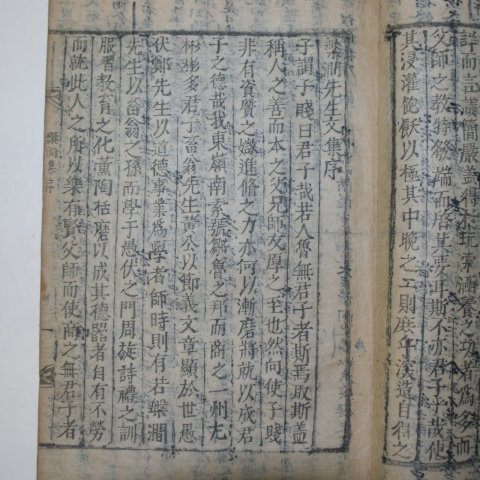 詳而言議簡嚴盡得於玩索涵養之功者爲多而
父師之教特發端而啓其要耳斯不亦君子乎哉使
其浸灌飽飫以極其中晚之工則庶乎深造自得之
槃澗先生文集序
子謂子賤曰君子哉若人魯無君子者斯焉取斯盖
稱人之善而本之父兄師友厚之至也然向使子賤
非有資質之媺進脩之方亦何以漸磨將就以成君
子之德哉我東嶺南素號鄒魯之邦而商之一州尤
彬彬多君子畜翁先生黃公以節義文章顯於世愚
伏鄭先生以道德事業爲學者師時則有若槃澗
先生以畜翁之孫而學于愚伏之門周旋詩禮之訓
服習教育之化薰陶栝磨以成其德器者自有不勞
而就此人之所以樂有賢父師而使商之無君子者
槃澗集序